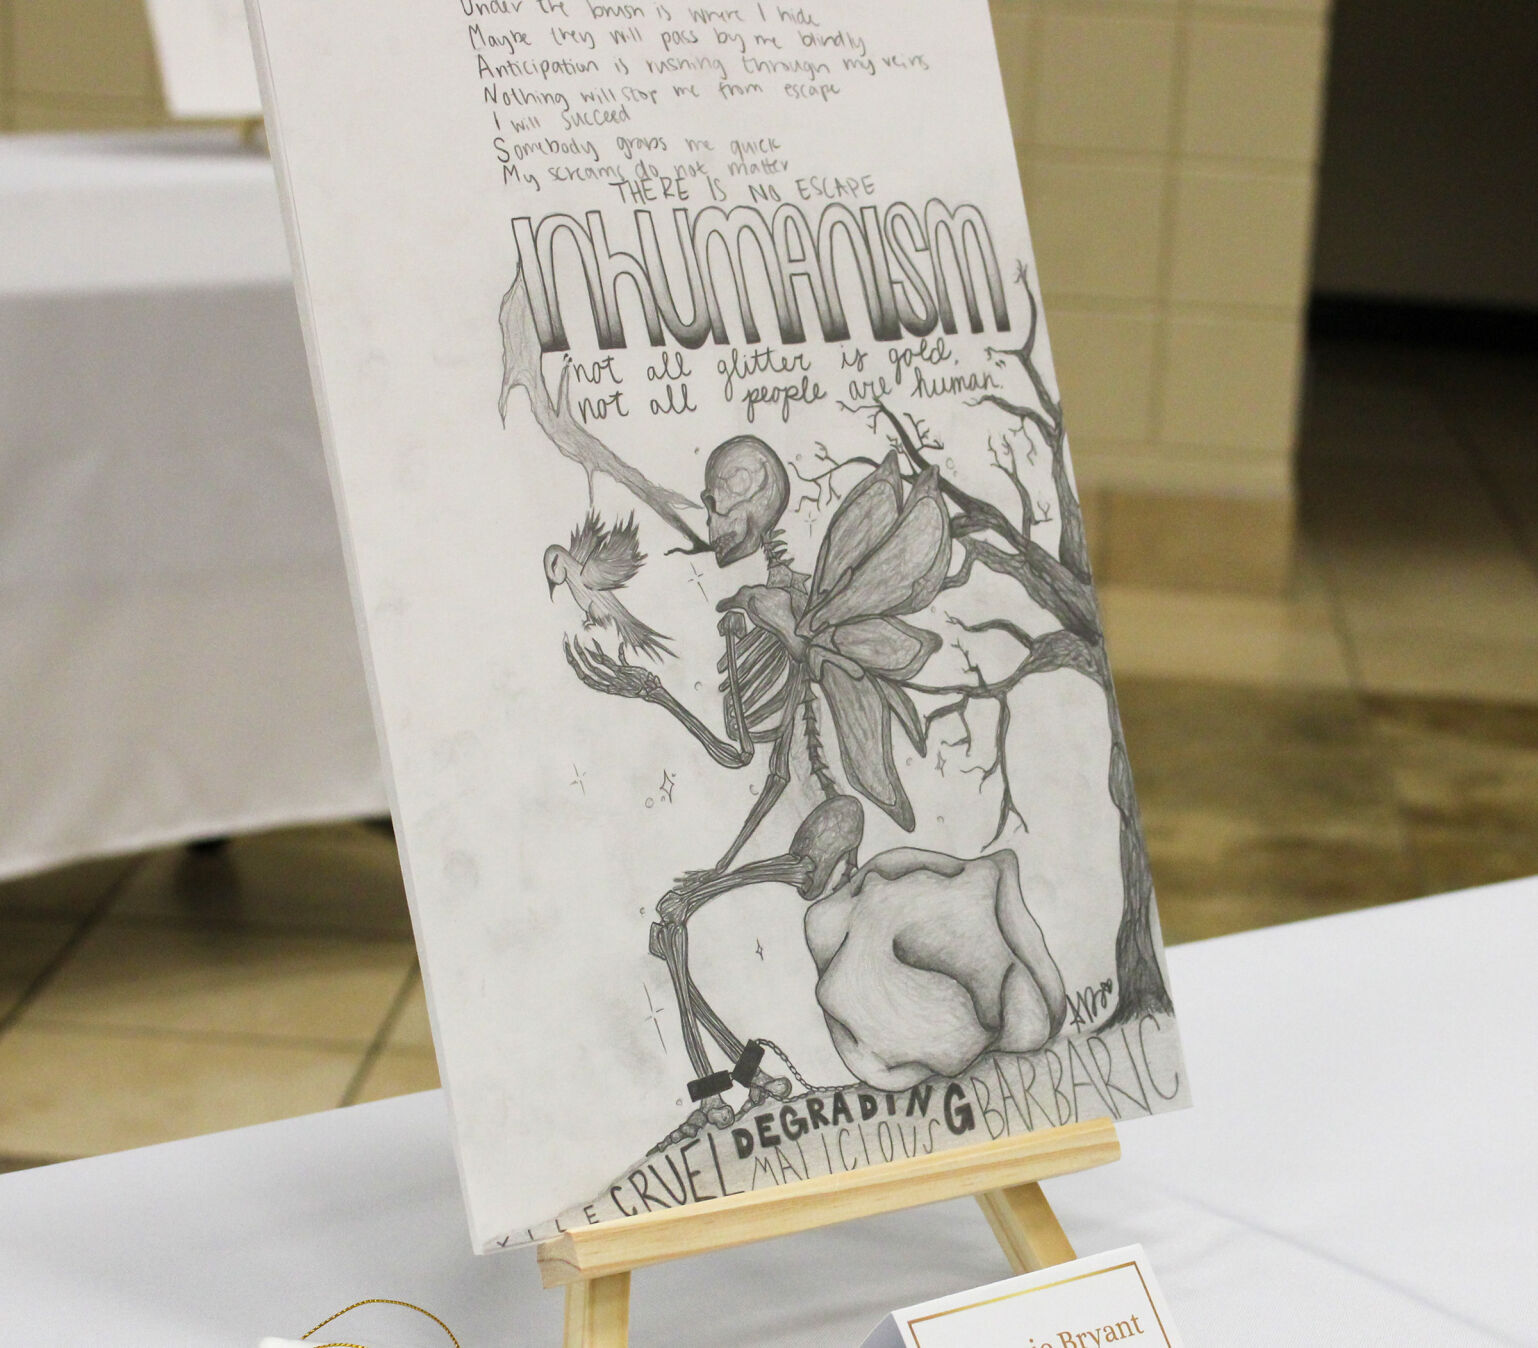 Under the brush is where I hide
Maybe they will pass by me blindly
Anticipation is rushing through my veins
Nothing will stop me from escape
I will succeed
Somebody grabs me quick
My screams do not matter
THERE IS NO ESCAPE
INhUMANISM
"not all glitter is gold,
not all people are human."
VILE CRUEL DEGRADING BARBARIC
MALICIOUS
Bryant